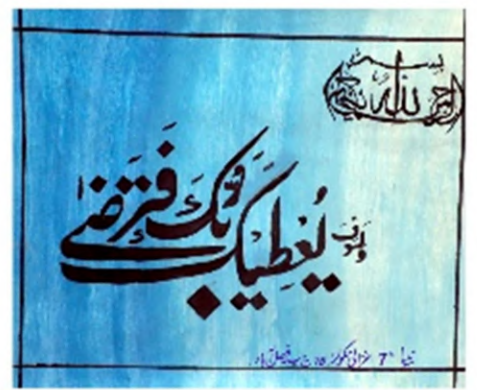 بسم الله الرحمن الرحيم
ولسوف يُعْطِيكَ رَبُّكَ فَتَرْضَىٰ
7 غزالی سکول ج ب فیصل آباد